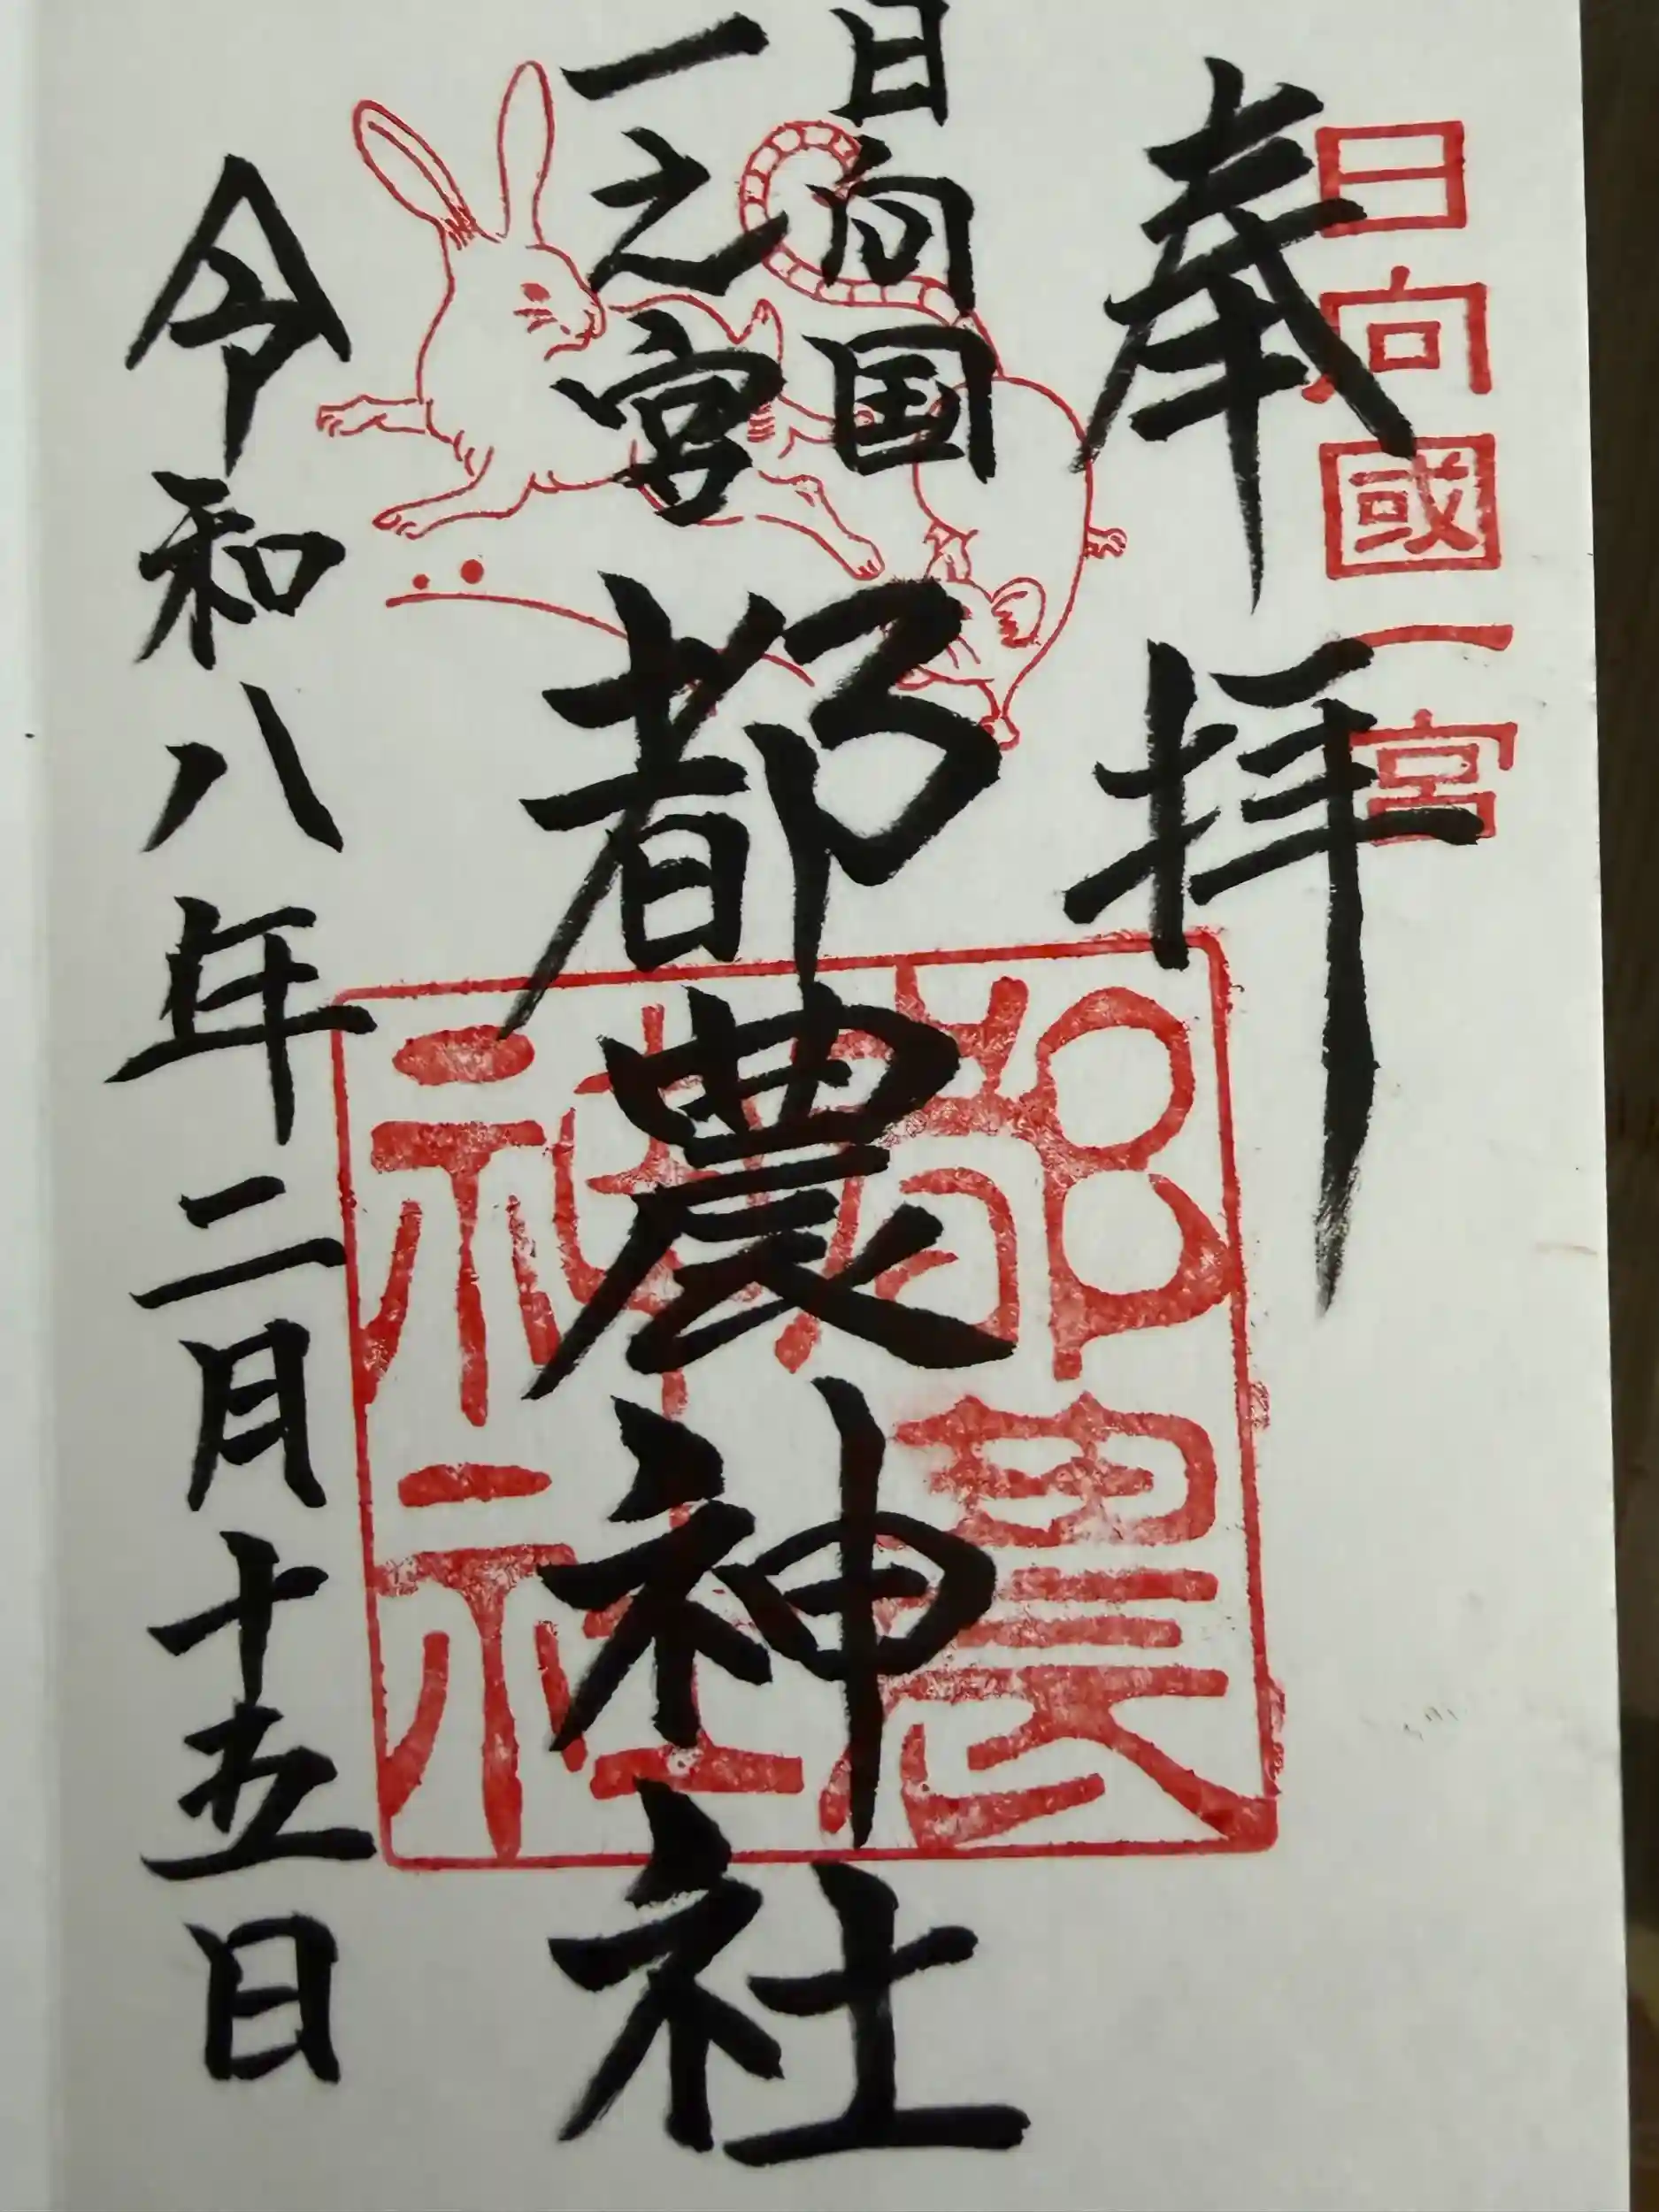 日向國一宮
奉拝
日向国
一之宮
都農神社
都農神社
令和八年二月十五日